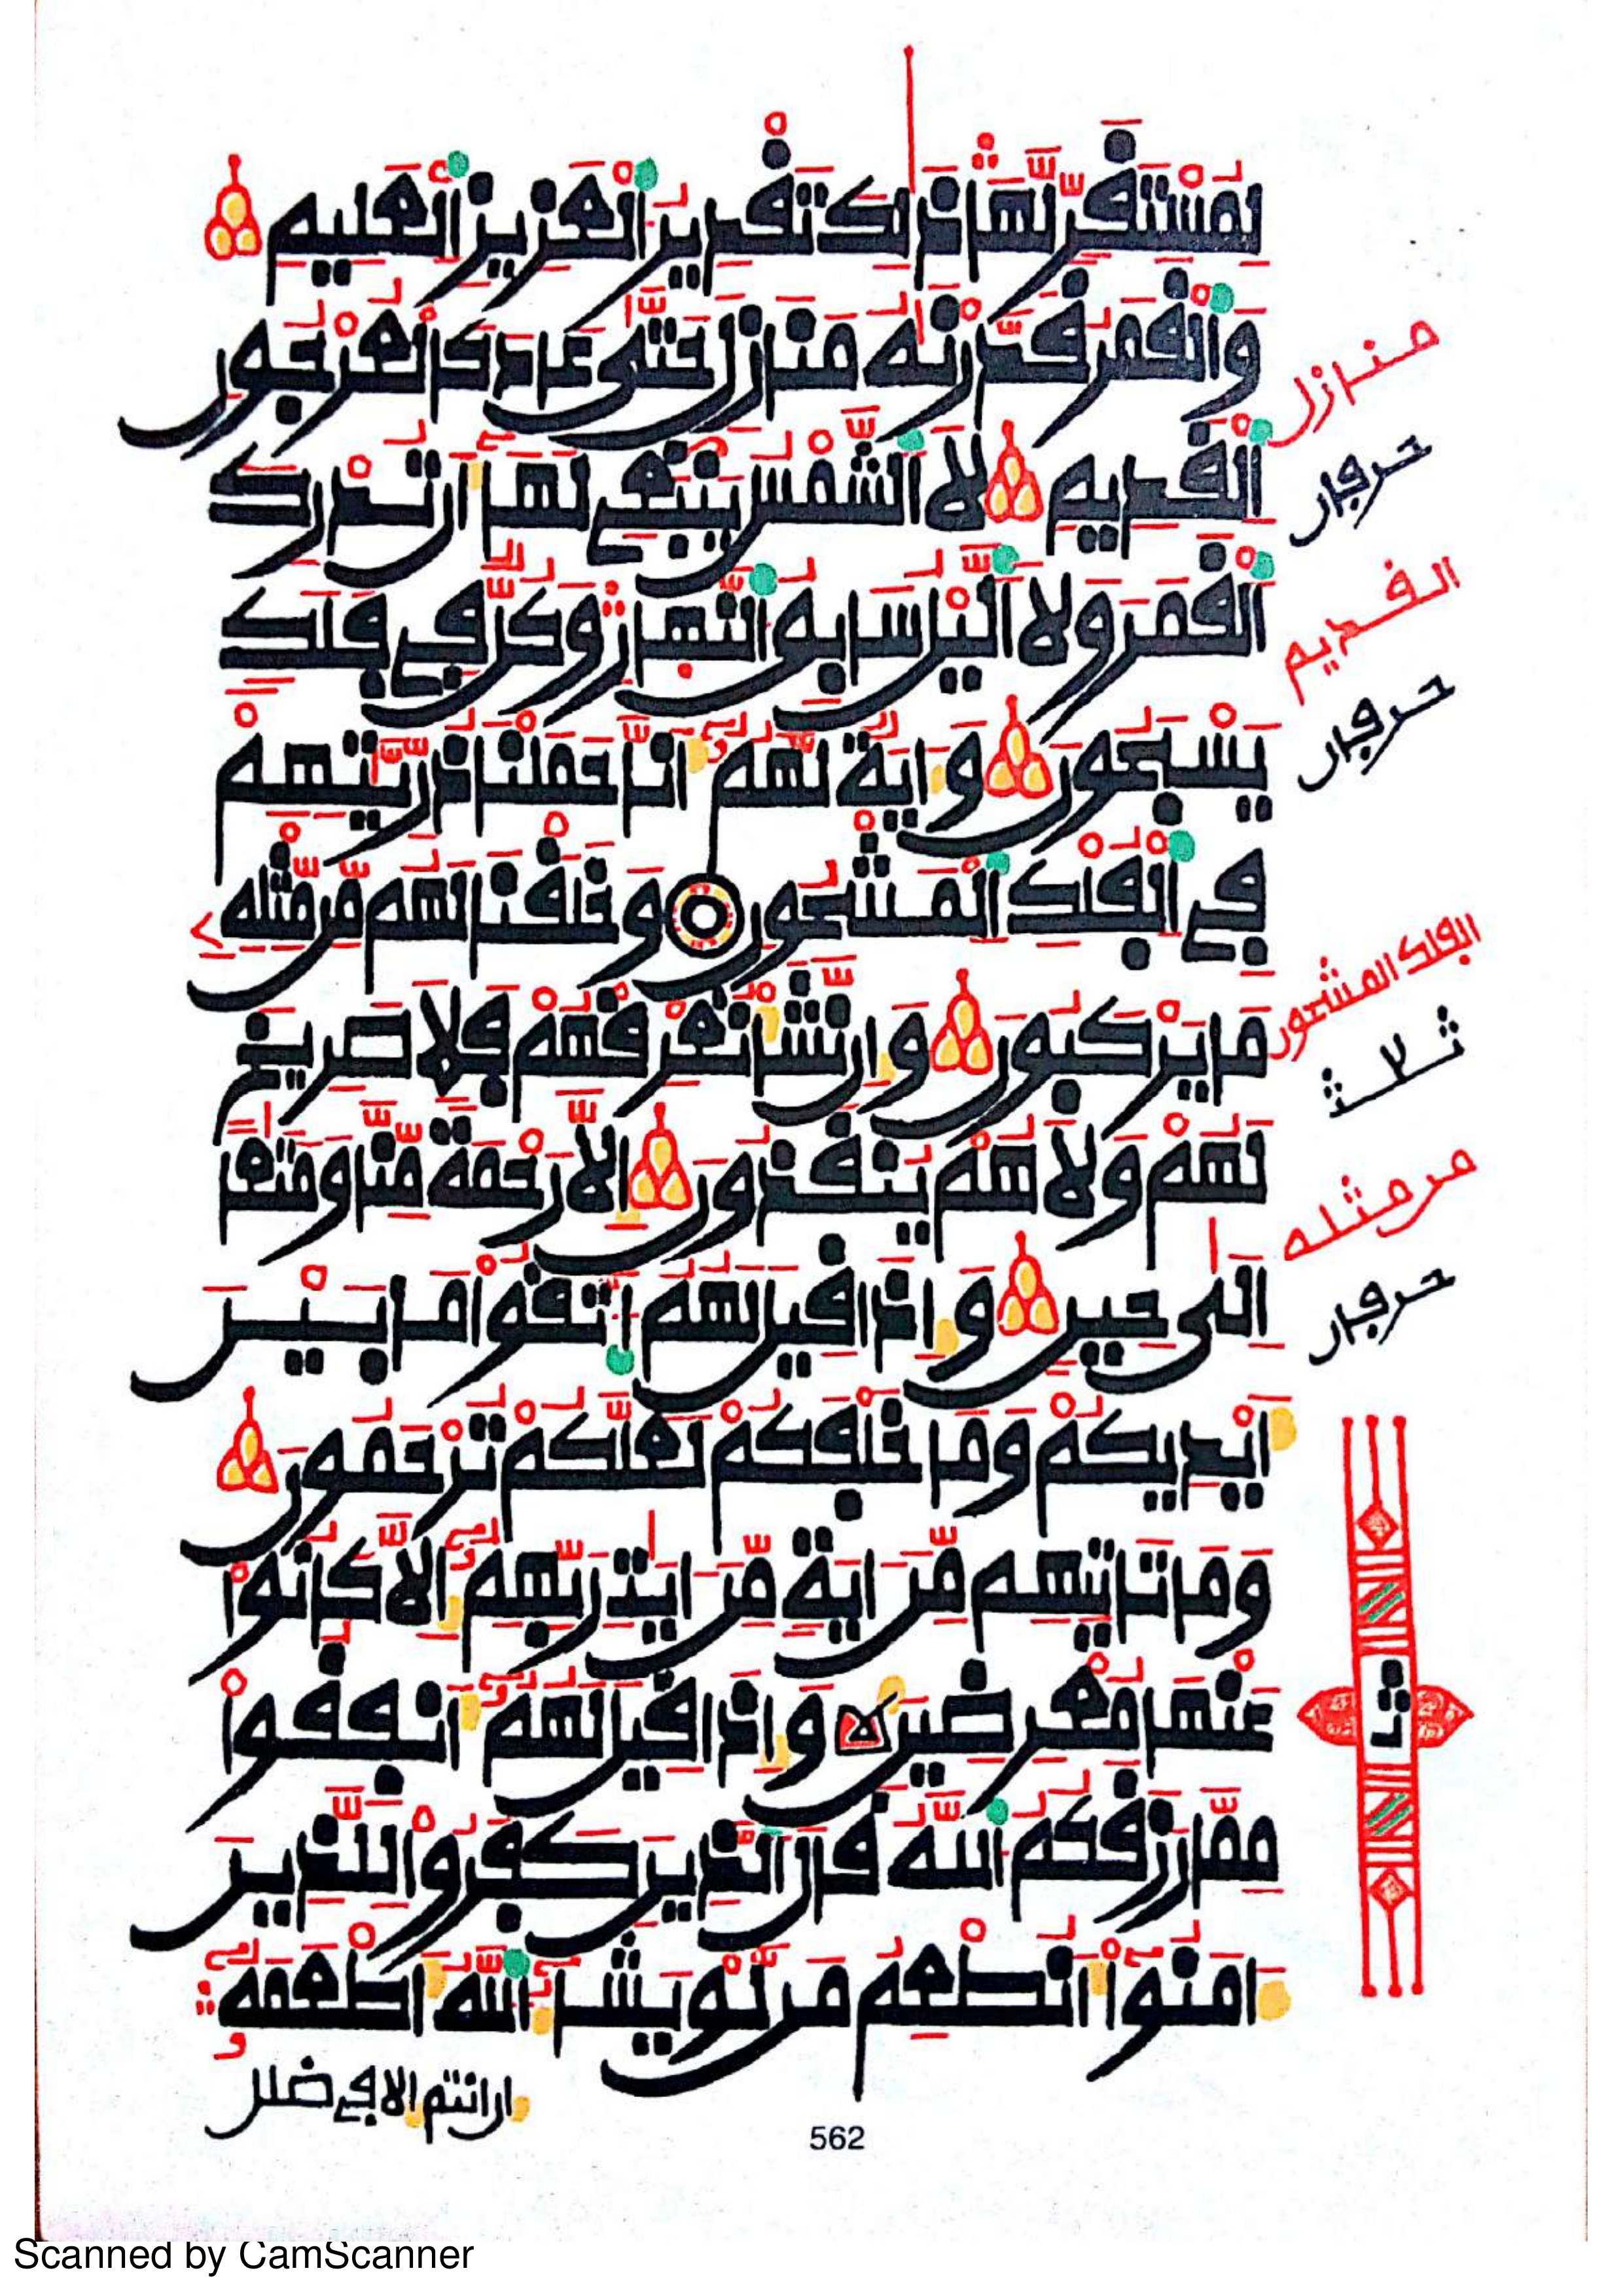 لِمُسْتَقَرٍّ لَّهَا ذَٰلِكَ تَقْدِيرُ الْعَزِيزِ الْعَلِيمِ
وَالْقَمَرَ قَدَّرْنَٰهُ مَنَازِلَ حَتَّىٰ عَادَ كَالْعُرْجُونِ
الْقَدِيمِ لَا الشَّمْسُ يَنۢبَغِي لَهَا أَن تُدْرِكَ
الْقَمَرَ وَلَا اليْلُ سَابِقُ النَّهَارِ وَكُلٌّ فِي فَلَكٍ
يَسْبَحُونَ وَءَايَةٌ لَّهُمُ أَنَّا حَمَلْنَا ذُرِّيَّتَهُمْ
فِي الْفُلْكِ الْمَشْحُونِ وَخَلَقْنَا لَهُم مِّن مِّثْلِهِ
مَا يَرْكَبُونَ وَإِن نَّشَأْ نُغْرِقْهُمْ فَلَا صَرِيخَ
لَهُمْ وَلَا هُمْ يُنقَذُونَ إِلَّا رَحْمَةً مِّنَّا وَمَتَٰعًا
إِلَىٰ حِينٍ وَإِذَا قِيلَ لَهُمُ اتَّقُوا مَا بَيْنَ
أَيْدِيكُمْ وَمَا خَلْفَكُمْ لَعَلَّكُمْ تُرْحَمُونَ
وَمَا تَأْتِيهِم مِّنَ ءَايَةٍ مِّنَ ءَايَٰتِ رَبِّهِمُ إِلَّا كَانُوا
عَنْهَا مُعْرِضِينَ وَإِذَا قِيلَ لَهُمُ أَنفِقُوا
مِمَّا رَزَقَكُمُ اللَّهُ قَالَ الَّذِينَ كَفَرُوا لِلَّذِينَ
ءَامَنُوا أَنُطْعِمُ مَن لَّوْ يَشَاءُ اللَّهُ أَطْعَمَهُ
إن أنتم إلا في ضلل
562
منازل
حرفان
القديم
حرفان
الفلك المشحون
من مثله
حرفان
ثمن
Scanned by CamScanner